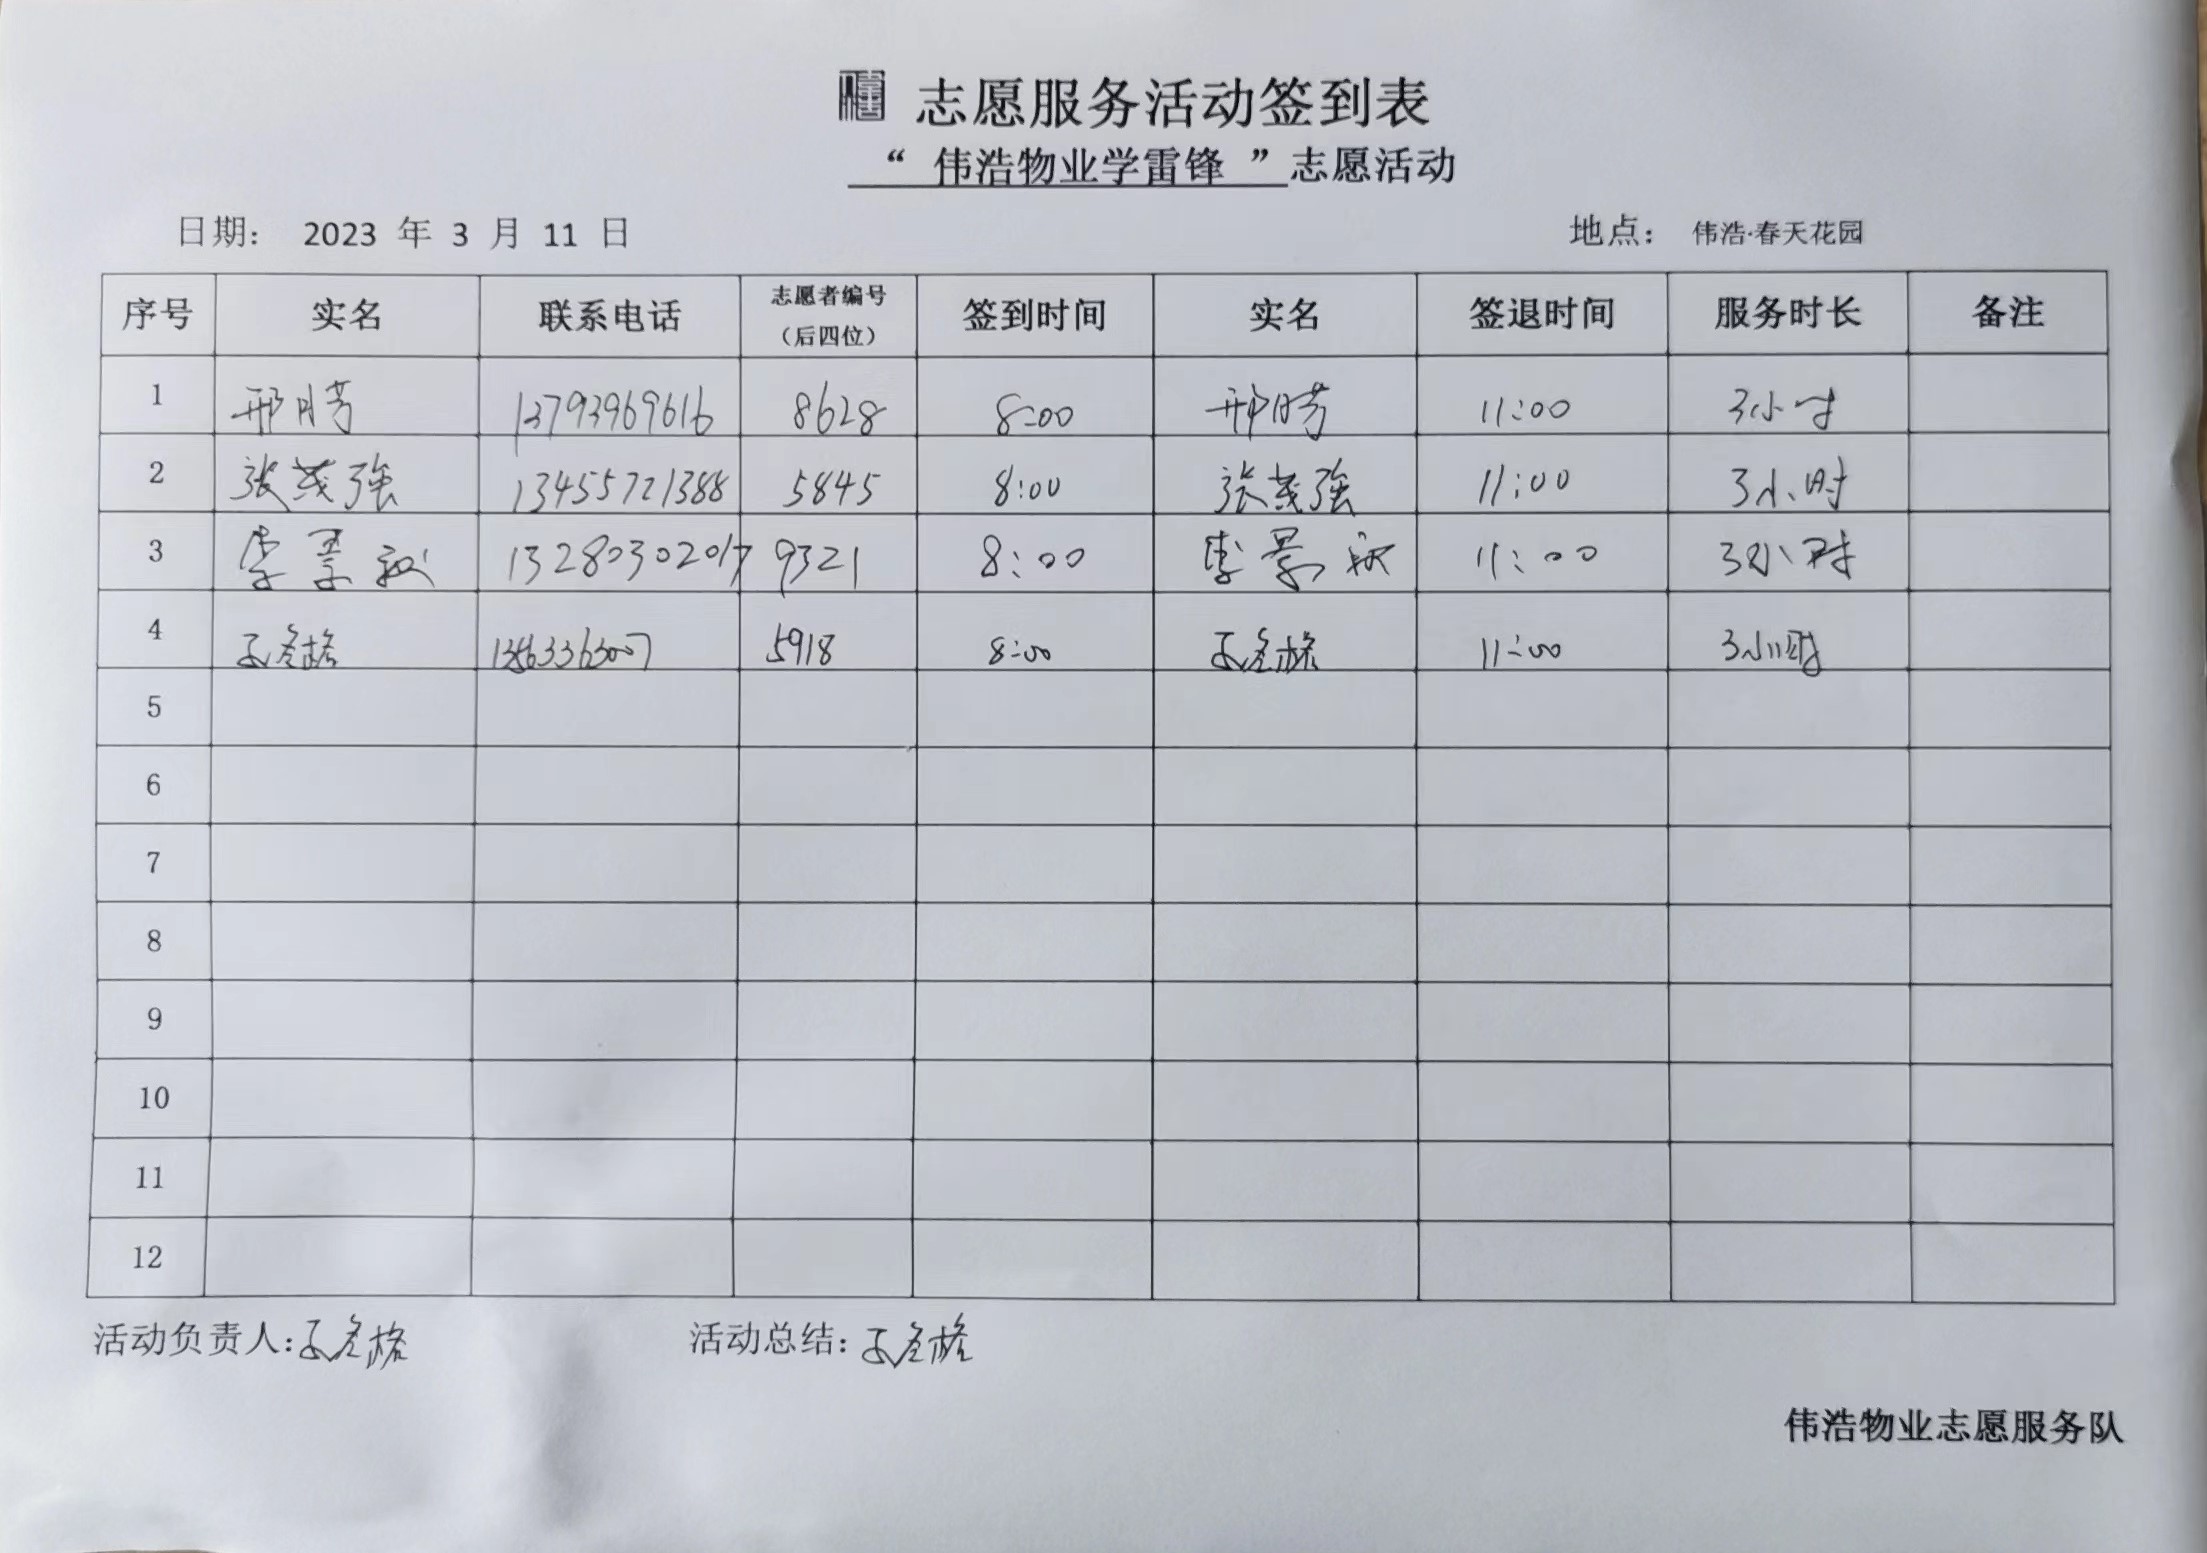 志愿服务活动签到表
“ 伟浩物业学雷锋 ”志愿活动
日期： 2023 年 3 月 11 日 地点： 伟浩·春天花园
序号 实名 联系电话 志愿者编号（后四位） 签到时间 实名 签退时间 服务时长 备注
1 邢月芳 13793969616 8628 8:00 邢月芳 11:00 3小时
2 张茂强 13455721388 5845 8:00 张茂强 11:00 3小时
3 李景 13280302017 9321 8:00 李景 11:00 3小时
4 格 5918 8:00 格 11:00 3小时
5
6
7
8
9
10
11
12
活动负责人: 格 活动总结: 格
伟浩物业志愿服务队